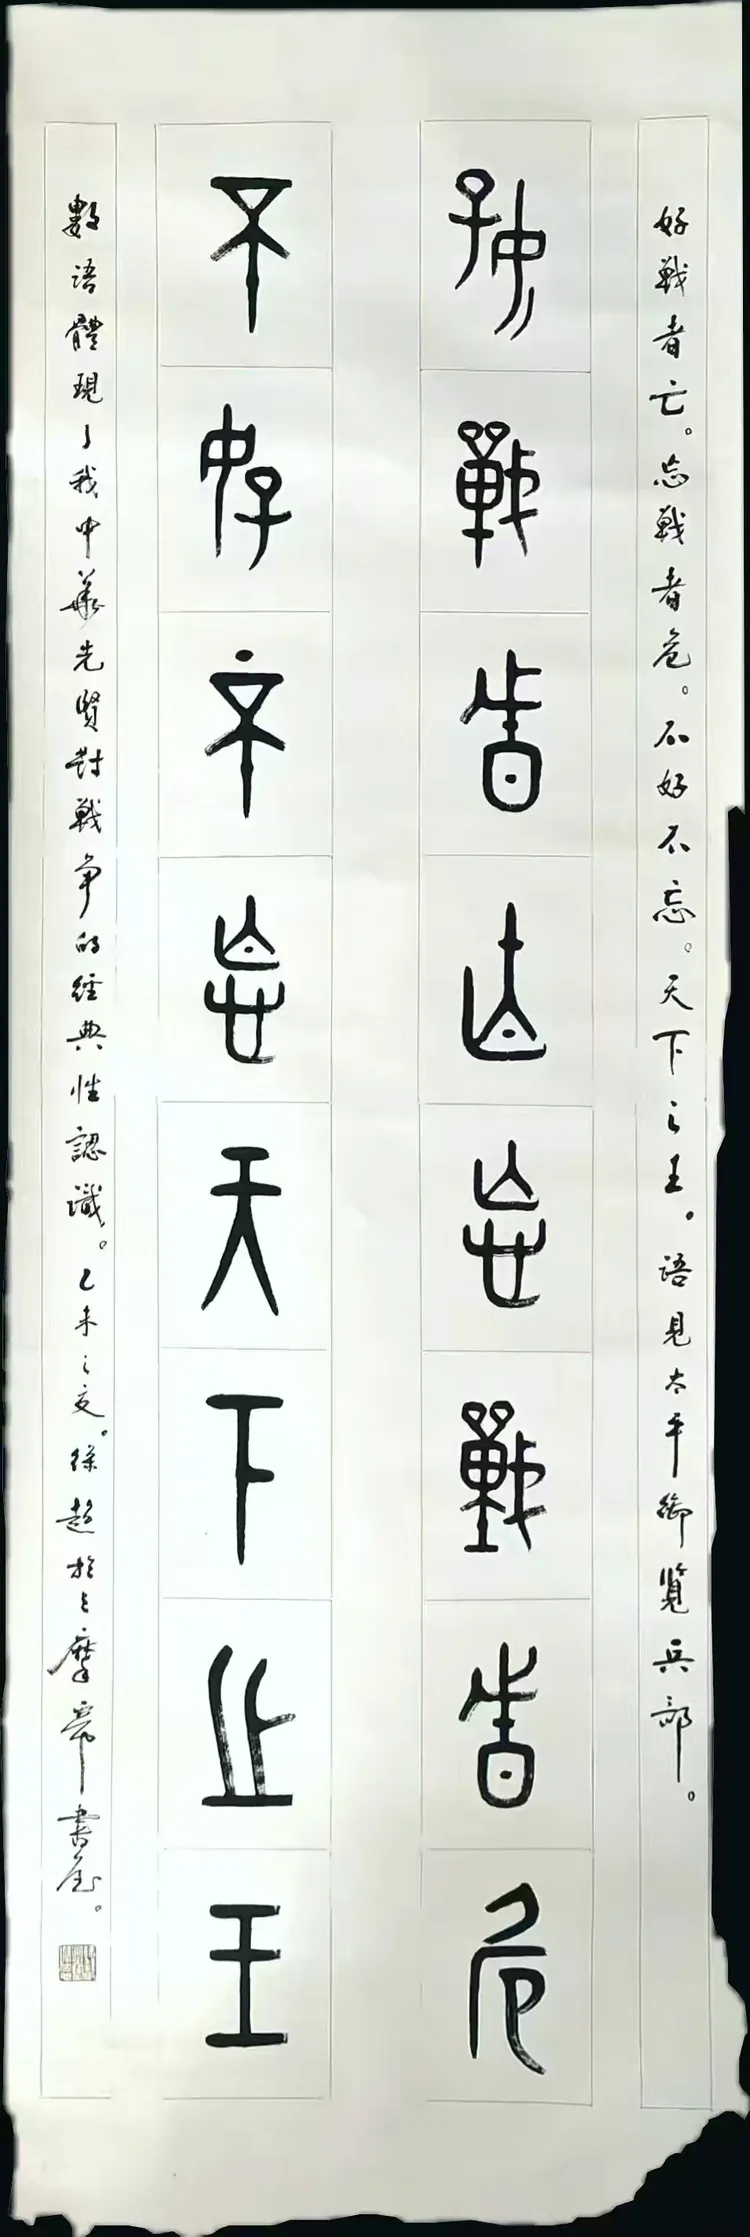 好戰者亡。忘戰者危。不好不忘。天下之王。语見太平御覽兵部。
好戰者亡忘戰者危
不好不忘天下之王
數语體現了我中華先賢對戰争的經典性認識。乙未之夏。徐超於之摩帚書屋。